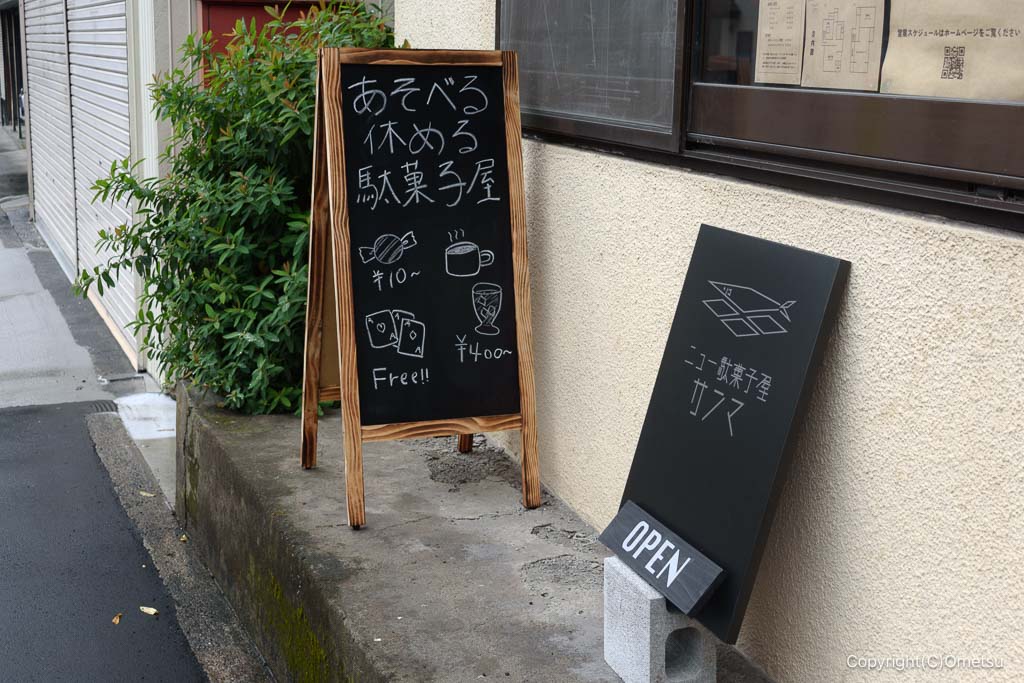 あそべる
休める
駄菓子屋
¥10~
¥400~
Free!!
ニュー駄菓子屋
サフマ
OPEN
営業スケジュールはホームページをご覧ください
Copyright(C)Ometsu